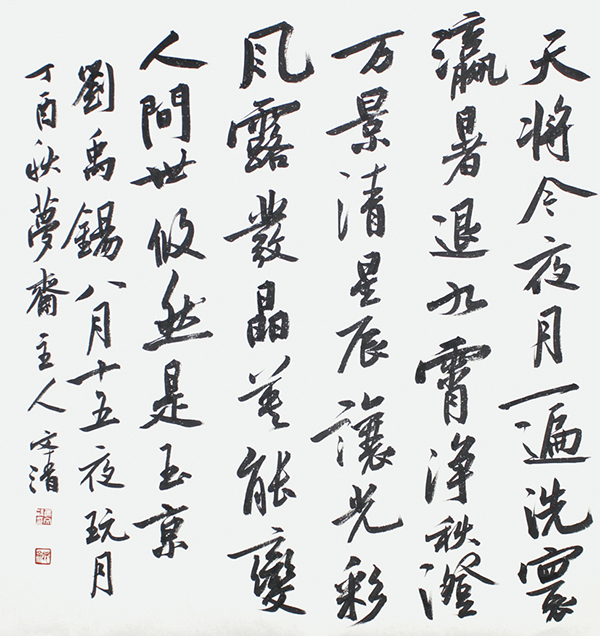 天将今夜月一遍洗寰
瀛暑退九霄净秋澄
万景清星辰讓光彩
风露發晶英能變
人間世攸然是玉京
劉禹錫八月十五夜玩月
丁酉秋夢齋主人